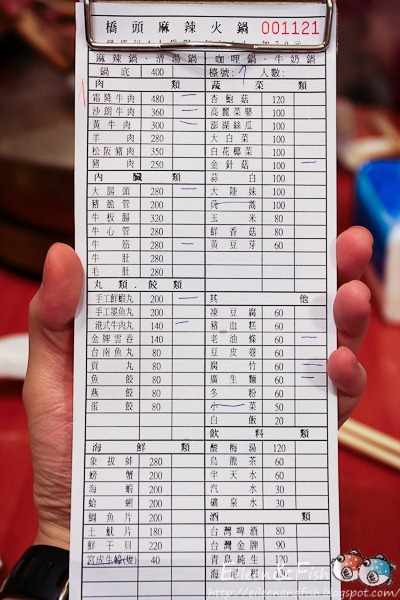 橋頭麻辣火鍋 001121
麻辣鍋．清湯鍋 咖哩鍋．牛奶鍋
鍋底 400 檯號：7 人數：
肉類 蔬菜類
霜降牛肉 480 一 杏鮑菇 120
沙朗牛肉 360 一 高麗菜嬰 100
黃牛肉 300 一 澎湖絲瓜 100
羊肉 280 大白菜 100
松阪豬肉 350 白花椰菜 100
豬肉 250 金針菇 100 一
內臟類 蒜白 100
大腸頭 280 一 大陸妹 100
豬脆管 200 茼蒿 100
牛板腸 320 玉米 80
牛心管 280 鮮香菇 80
牛筋 280 一 黃豆芽 60
牛肚 280
毛肚 280
丸類．餃類
手工鮮蝦丸 200 一 其他
手工墨魚丸 200 凍豆腐 60
港式牛肉丸 140 一 豬血糕 60
金牌雲吞 140 老油條 60 一
台南魚丸 80 豆皮卷 60
貢丸 80 腐竹 60 一
魚餃 80 廣生麵 60 一
燕餃 80 冬粉 60
蛋餃 80 菜 50
白飯 20
飲料類
海鮮類 酸梅湯 120
象拔蚌 280 烏龍茶 60
螃蟹 200 半天水 60
海蝦 200 汽水 30
蛤蜊 200 礦泉水 30
鯛魚片 200 酒類
土魷片 180 台灣啤酒 80
鮮干貝 220 台灣金牌 90
宮成生蠔(隻) 40 青島純生 120
海尼根